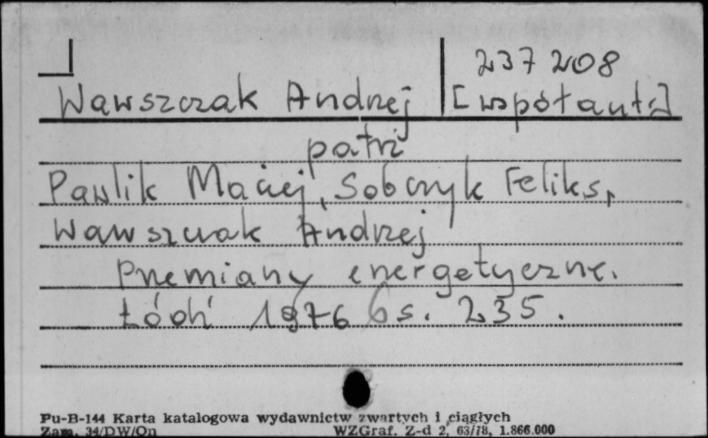 237 208
Wawszczak Andrzej [współauto]
patrz
Pawlik Maciej, Sobczyk Feliks,
Wawszczak Andrzej
Przemiany energetyczne.
Łódź 1976 s. 235.
Pu-B-144 Karta katalogowa wydawnictw zwartych i ciągłych
Zam. 34/DW/On WZGraf. Z-d 2, 63/78, 1.866.000